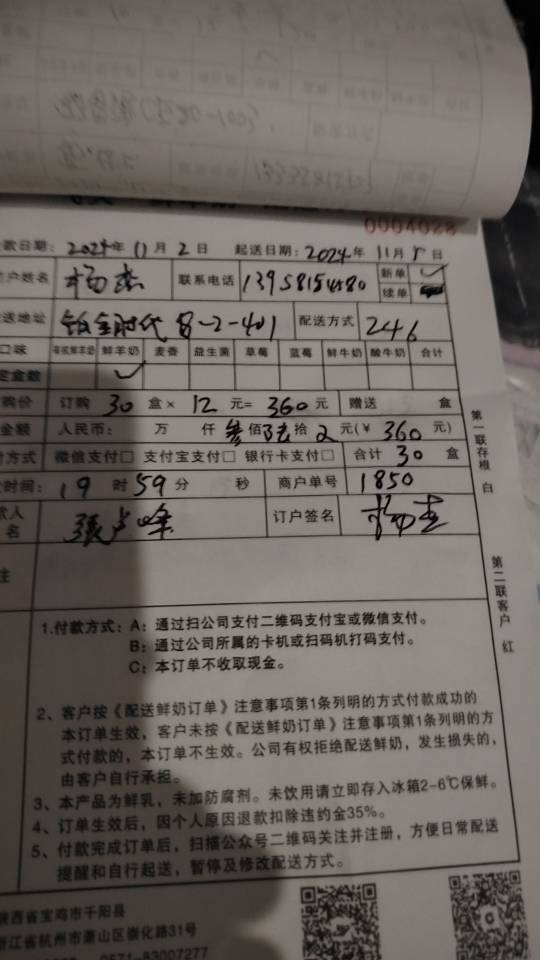 0004028
款日期：2024年11月2日 起送日期：2024年11月5日
客户姓名 杨杰 联系电话 13958154580 新单 ✓
续单
送地址 铂金时代8-2-401 配送方式 246
口味 鲜羊奶 麦香 益生菌 草莓 蓝莓 鲜牛奶 酸牛奶 合计
定盒数 ✓
购价 订购 30 盒× 12 元= 360 元 赠送 盒
金额 人民币： 万 仟 叁佰陆拾 元(￥ 360 元)
付方式 微信支付□ 支付宝支付□ 银行卡支付□ 合计 30 盒
时间： 19 时 59 分 秒 商户单号 1850
款人
名 张卢峰 订户签名 杨杰
注
第一联存根 白
第二联客户 红
1.付款方式：A：通过扫公司支付二维码支付宝或微信支付。
B：通过公司所属的卡机或扫码机打码支付。
C：本订单不收取现金。
2、客户按《配送鲜奶订单》注意事项第1条列明的方式付款成功的
本订单生效，客户未按《配送鲜奶订单》注意事项第1条列明的方
式付款的，本订单不生效。公司有权拒绝配送鲜奶，发生损失的，
由客户自行承担。
3、本产品为鲜乳，未加防腐剂。未饮用请立即存入冰箱2-6℃保鲜。
4、订单生效后，因个人原因退款扣除违约金35%。
5、付款完成订单后，扫描公众号二维码关注并注册，方便日常配送
提醒和自行起送，暂停及修改配送方式。
陕西省宝鸡市千阳县
浙江省杭州市萧山区崇化路31号
0571-83007277